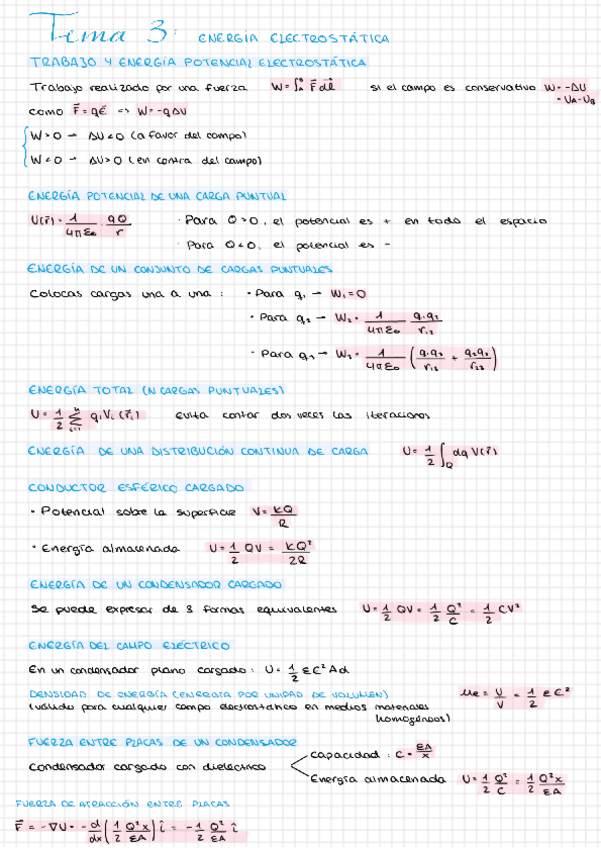 Tema 3: ENERGÍA ELECTROSTÁTICA
TRABAJO Y ENERGÍA POTENCIAL ELECTROSTÁTICA
Trabajo realizado por una fuerza W = ∫ₐᴮ F⃗ dl⃗ si el campo es conservativo W = -ΔU
= UA - UB
como F⃗ = qE⃗ => W = -qΔU
W > 0 → ΔU < 0 (a favor del campo)
W < 0 → ΔU > 0 (en contra del campo)
ENERGÍA POTENCIAL DE UNA CARGA PUNTUAL
U(r⃗) = 1/4πε₀ · qQ/r · Para Q > 0, el potencial es + en todo el espacio
· Para Q < 0, el potencial es -
ENERGÍA DE UN CONJUNTO DE CARGAS PUNTUALES
Colocas cargas una a una : • Para q₁ → W₁ = 0
• Para q₂ → W₂ = 1/4πε₀ q₁q₂/r₁₂
• Para q₃ → W₃ = 1/4πε₀ (q₁q₃/r₁₃ + q₂q₃/r₂₃)
ENERGÍA TOTAL (N CARGAS PUNTUALES)
U = 1/2 Σᵢ₌₁ᴺ qᵢVᵢ(r⃗ᵢ) Evita contar dos veces las iteraciones
ENERGÍA DE UNA DISTRIBUCIÓN CONTINUA DE CARGA U = 1/2 ∫Q dq V(r⃗)
CONDUCTOR ESFÉRICO CARGADO
• Potencial sobre la superficie V = kQ/R
• Energía almacenada U = 1/2 QV = kQ²/2R
ENERGÍA DE UN CONDENSADOR CARGADO
Se puede expresar de 3 formas equivalentes U = 1/2 QV = 1/2 Q²/C = 1/2 CV²
ENERGÍA DEL CAMPO ELÉCTRICO
En un condensador plano cargado : U = 1/2 εE²Ad
DENSIDAD DE ENERGÍA (ENERGÍA POR UNIDAD DE VOLUMEN) μe = U/V = 1/2 εE²
(válido para cualquier campo electrostático en medios materiales
homogéneos)
FUERZA ENTRE PLACAS DE UN CONDENSADOR
Capacidad : C = εA/x
Condensador cargado con dieléctrico
Energía almacenada U = 1/2 Q²/C = 1/2 Q²x/εA
FUERZA DE ATRACCIÓN ENTRE PLACAS
F⃗ = -∇U = - d/dx (1/2 Q²x/εA) î = - 1/2 Q²/εA î